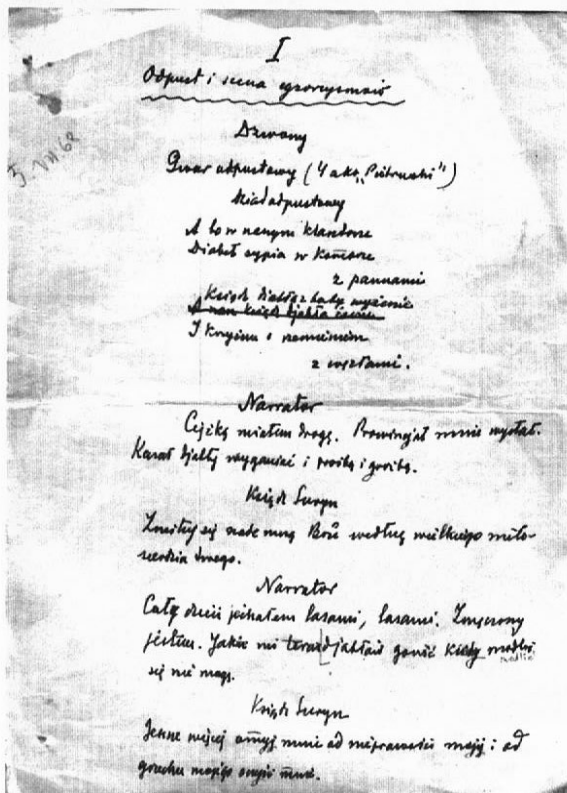 I
Odpust i scena egzorcyzmów
5. VII 68
Dzwony
Gwar odpustowy (Y ako „Pietruszki")
Dziad odpustowy
A to w naszym klasztorze
Diabeł sypia w komorze
z pannami
Ksiądz diabła z baby wyżenie
A nam ksiądz djabła
I krzyżem i
z
Narrator
Ciężką miałem drogę. Prowincjał mnie wysłał.
Kazał djabły wyganiać i prośbą i groźbą.
Ksiądz Suryn
Zmiłuj się nade mną Boże według wielkiego miło-
sierdzia twego.
Narrator
Cały dzień jechałem lasami, lasami. Zmęczony
jestem. Jakże mi teraz djabłów gonić kiedy modlić
modlić
się nie mogę.
Ksiądz Suryn
Jeszcze więcej omyj mnie od nieprawości mojej i od
grzechu mojego oczyść mnie.